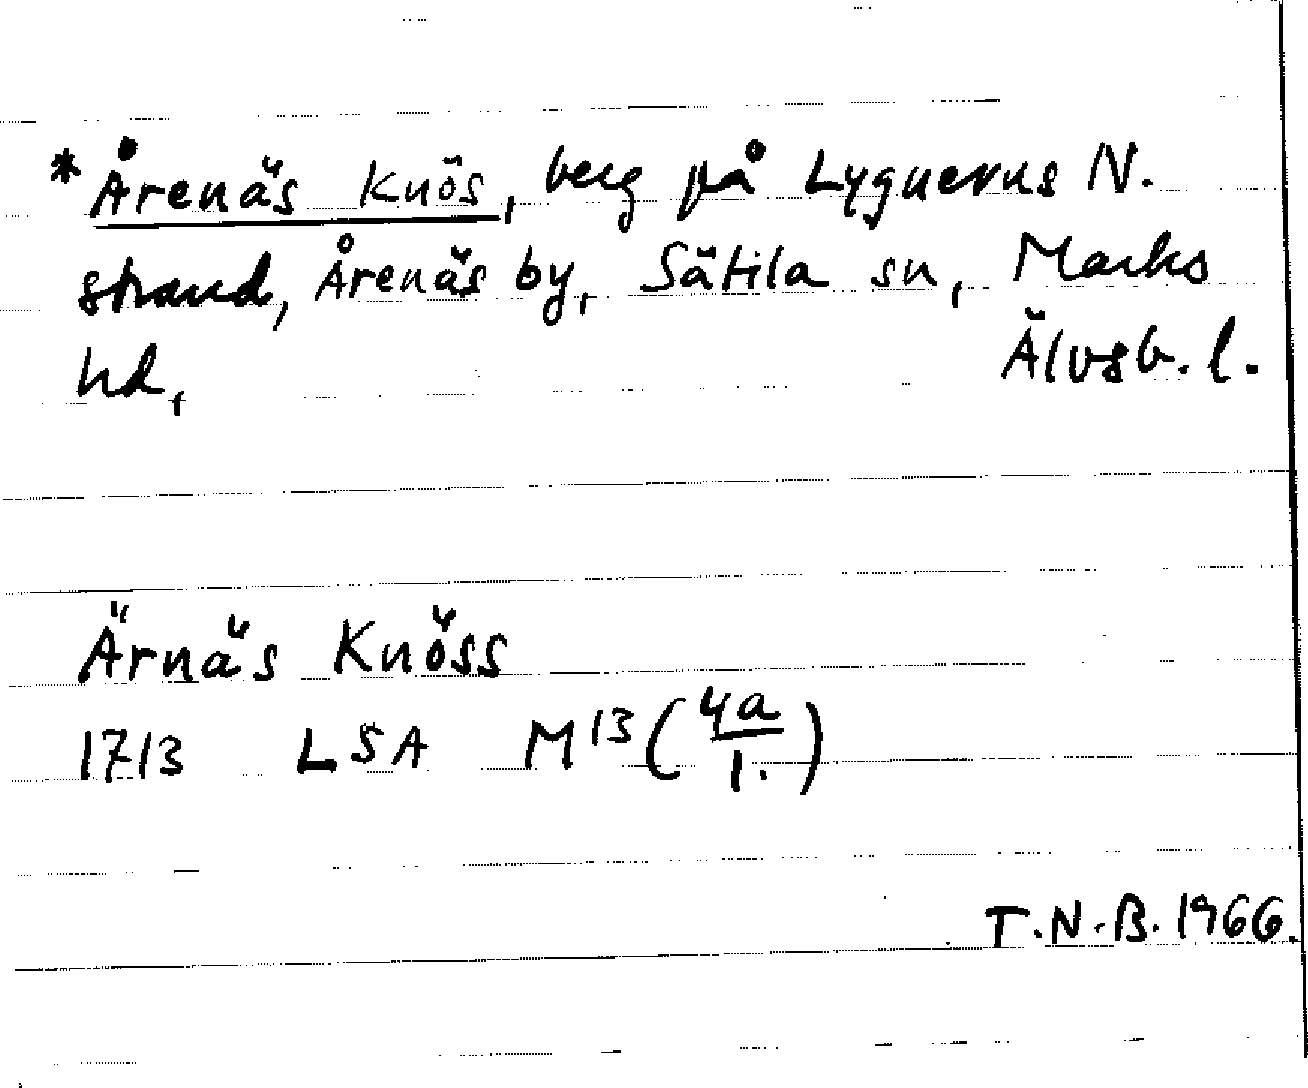 *Årenäs Knös, berg på Lygnerns N.
strand, Årenäs by, Sätila sn, Marks
hd, Älvsb. l.
Ärnäs Knöss
1713 LSA M13 (4a/1.)
T.N.B. 1966.